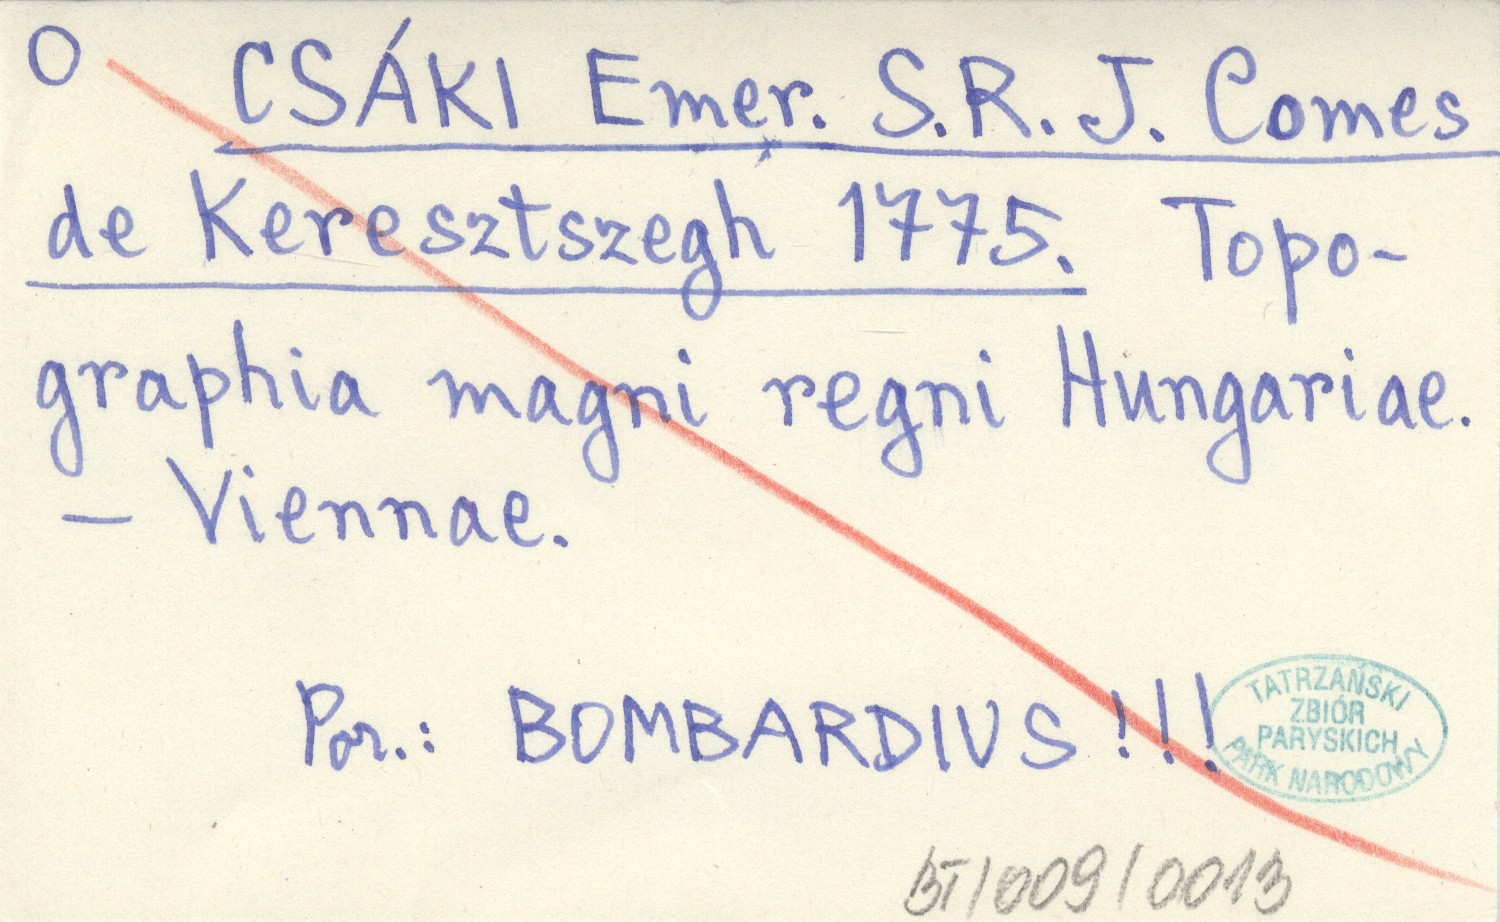 O CSÁKI Emer. S.R.J. Comes
de Keresztszegh 1775. Topo-
graphia magni regni Hungariae.
— Viennae.
Por.: BOMBARDIUS!!!
TATRZAŃSKI
ZBIÓR
PARYSKICH
PARK NARODOWY
BT/009/0013